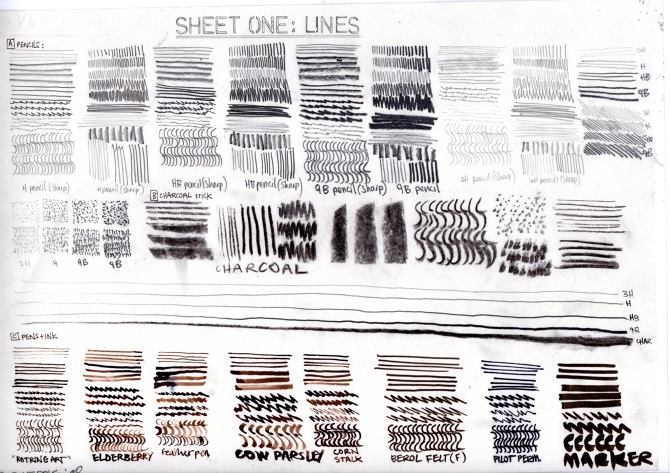 SHEET ONE: LINES
A PENCILS:
3H
H
HB
9B
H
9B
H pencil (sharp)
H pencil (sharp)
HB pencil (sharp)
HB pencil (sharp)
9B pencil (sharp)
9B pencil
3H pencil (sharp)
3H pencil (sharp)
B CHARCOAL STICK
3H
H
9B
9B
CHARCOAL
3H
H
HB
9B
CHAR
C PENS + INK
"ROTRING ART"
ELDERBERRY
Feather pen
COW PARSLEY
CORN STALK
BEROL FELT (F)
PILOT PERM.
MARKER